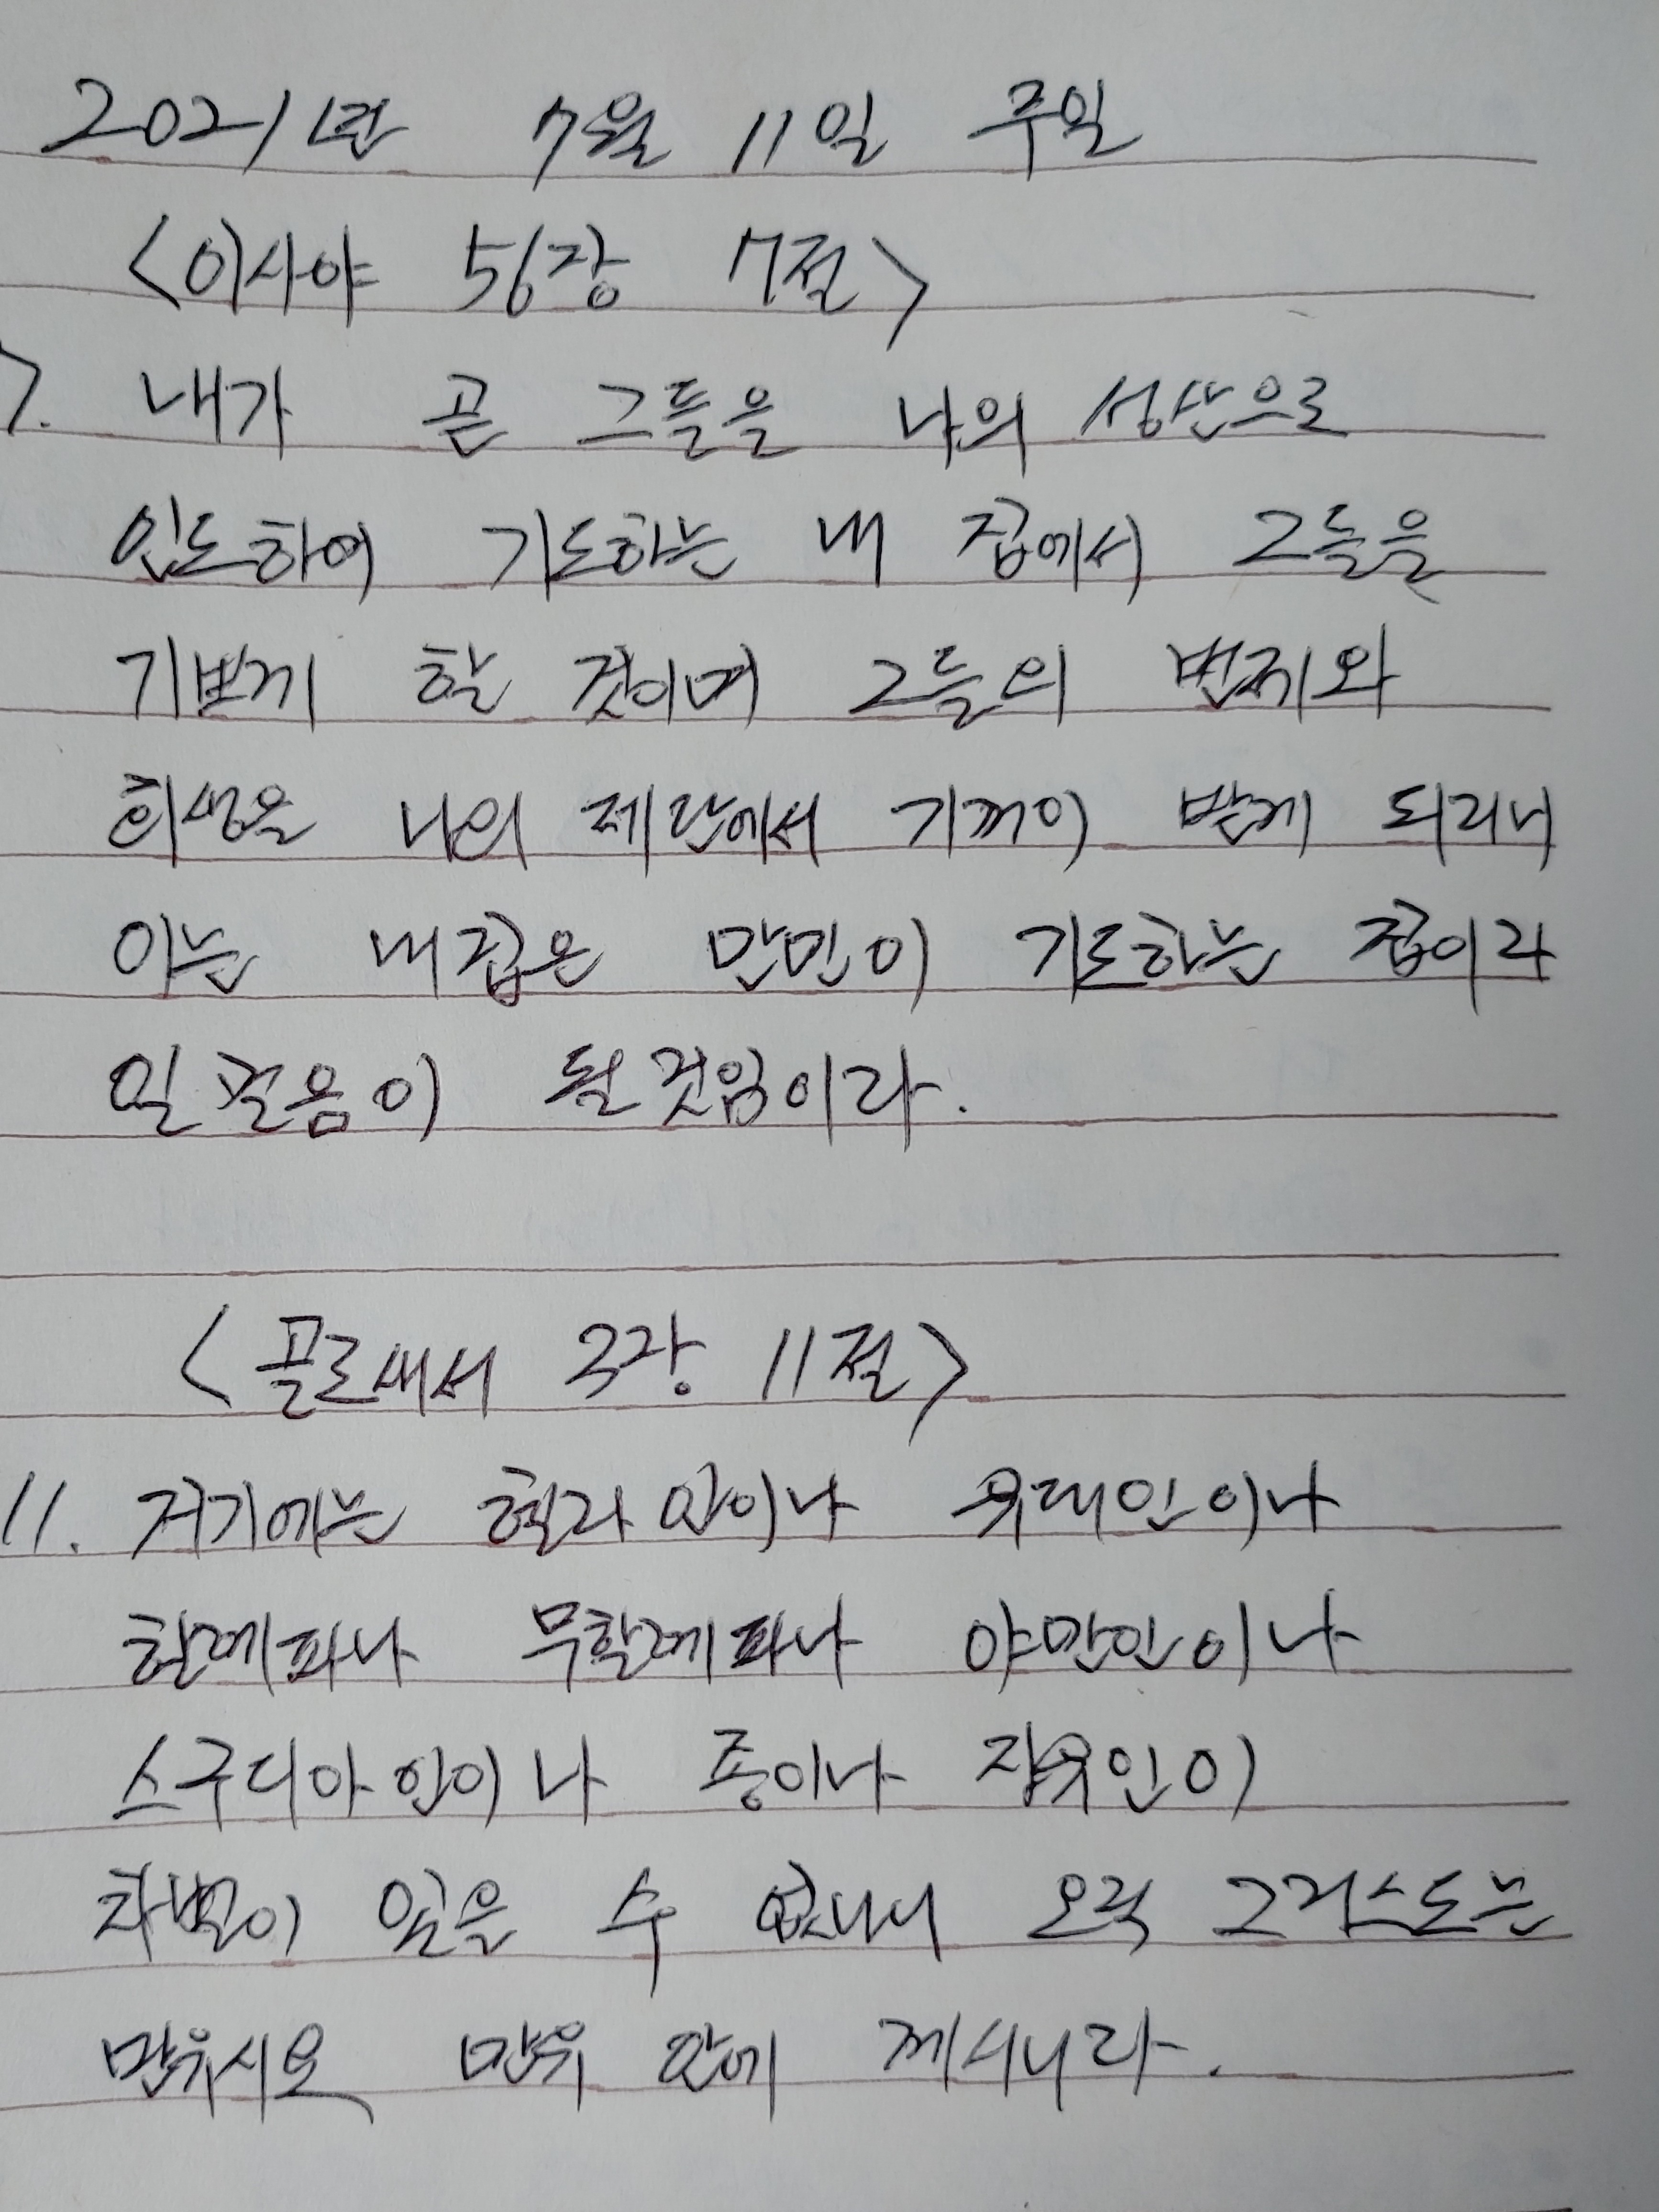 2021년 7월 11일 주일
<이사야 56장 7절>
7. 내가 곧 그들을 나의 성산으로
인도하여 기도하는 내 집에서 그들을
기쁘게 할 것이며 그들의 번제와
희생은 나의 제단에서 기꺼이 받게 되리니
이는 내 집은 만민이 기도하는 집이라
일컬음이 될 것임이라.
<골로새서 3장 11절>
11. 거기에는 헬라인이나 유대인이나
할례파나 무할례파나 야만인이나
스구디아인이나 종이나 자유인이
차별이 있을 수 없나니 오직 그리스도는
만유시요 만유 안에 계시니라.